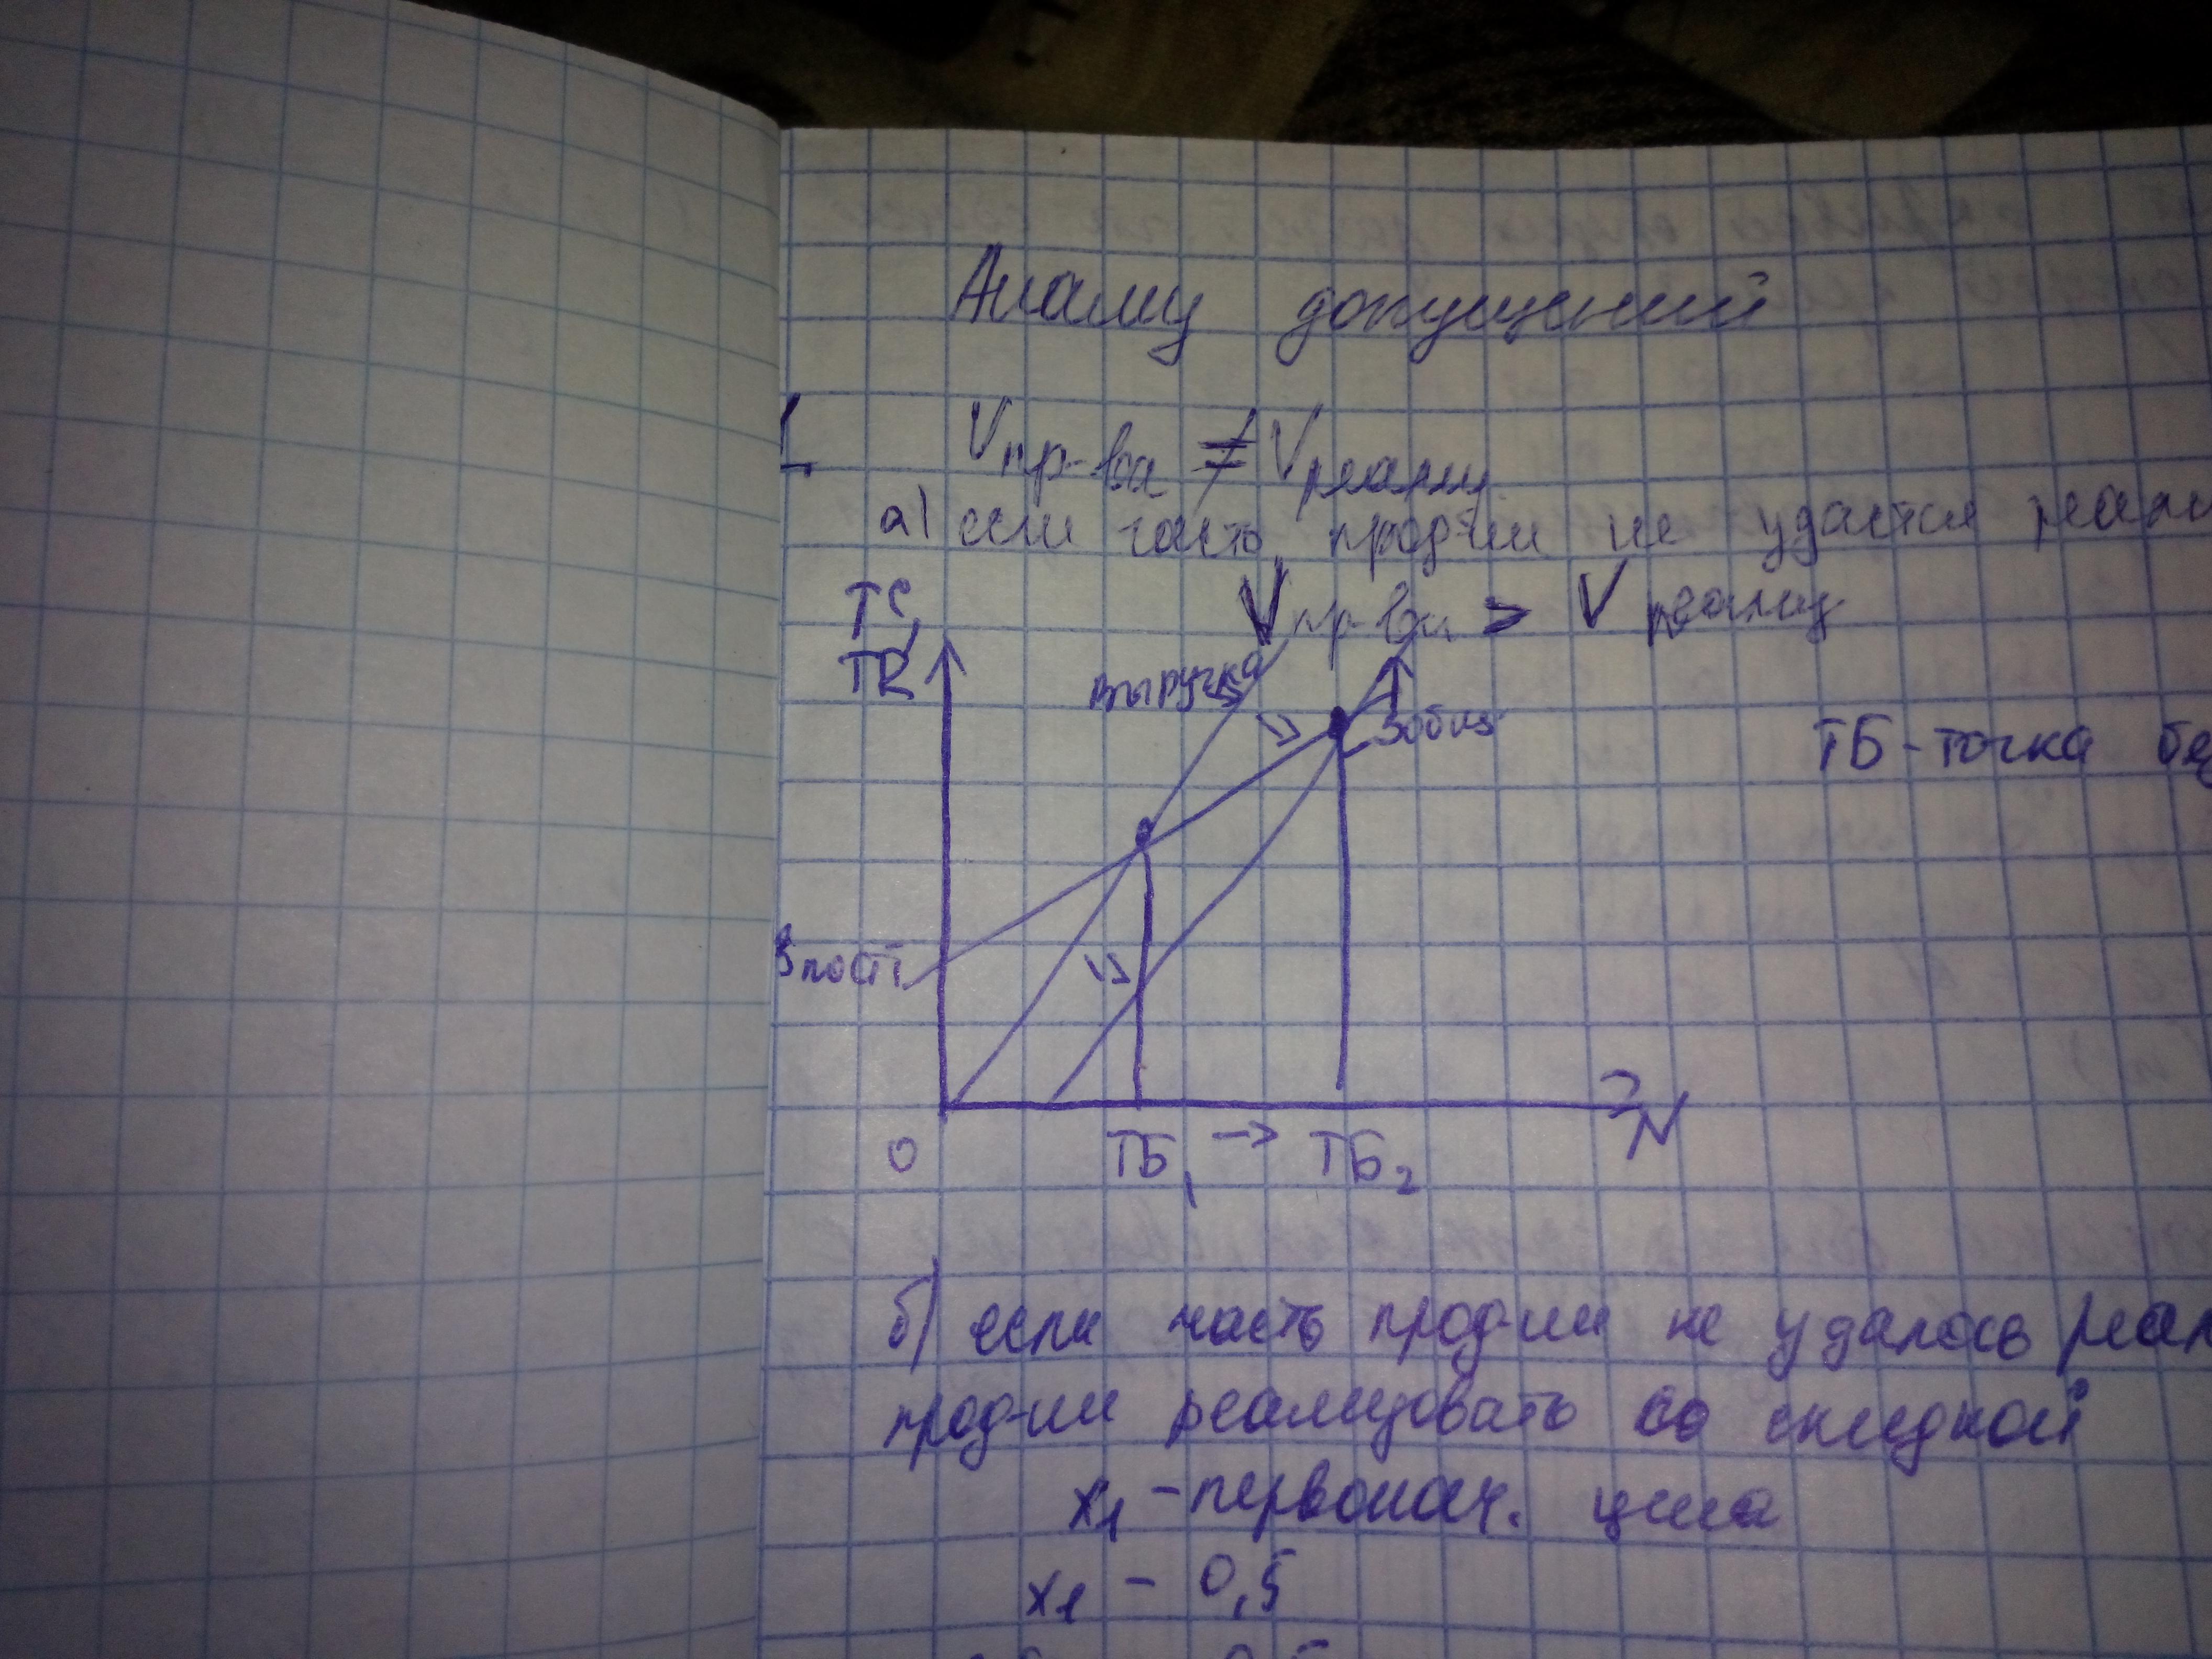 Анализ допущений
1 Vпр-ва ≠ Vреализ.
а) если часть прод-ии не удастся реали
Vпр-ва > Vреализ
TC,
TR
выручка
Зобщ
ТБ - точка без
Зпост
0
ТБ1 → ТБ2
N
б) если часть прод-ии не удалось реал
прод-ии реализовать со скидкой
x1 - первонач. цена
x1 - 0,5